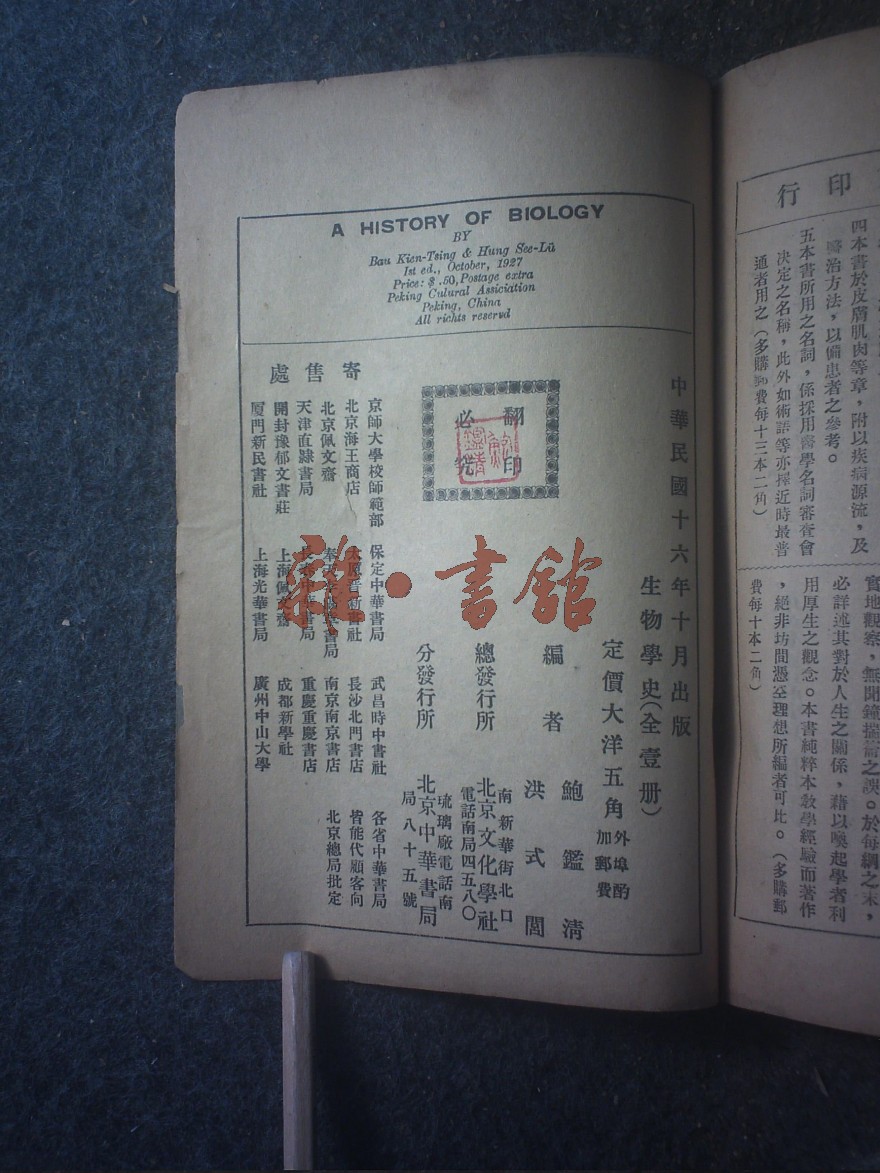 A HISTORY OF BIOLOGY
BY
Bau Kien-Tsing & Hung See-Lü
1st ed., October, 1927
Price: $ .50, Postage extra
Peking Cutural Assiciation
Peking, China
All rights reservd
中華民國十六年十月出版
生物學史(全壹册)
定價大洋五角
外埠酌
加郵費
編者
鮑鑑清
洪式閭
總發行所
南新華街北口
北京文化學社
電話南局四五八〇
分發行所
琉璃廠電話南
北京中華書局
局八十五號
翻印
必究
寄售處
京師大學校師範部
保定中華書局
武昌時中書社
各省中華書局
北京海王商店
書社
長沙北門書店
皆能代顧客向
北京佩文齋
奉天
書局
南京南京書店
北京總局批定
天津直隸書局
書局
重慶重慶書店
開封豫郁文書莊
上海佩文齋
成都新學社
厦門新民書社
上海光華書局
廣州中山大學
雜·書館
印行
四本書於皮膚肌肉等章,附以疾病源流,及
醫治方法,以備患者之參考。
五本書所用之名詞,係採用醫學名詞審查會
決定之名稱,此外如術語等亦擇近時最普
通者用之(多購郵費每十三本二角)
實地觀察,無聞鐘揣籥之誤。於每綱之末,
必詳述其對於人生之關係,藉以喚起學者利
用厚生之觀念。本書純粹本教學經驗而著作
,絕非坊間憑空理想所編者可比。(多購郵
費每十本二角)